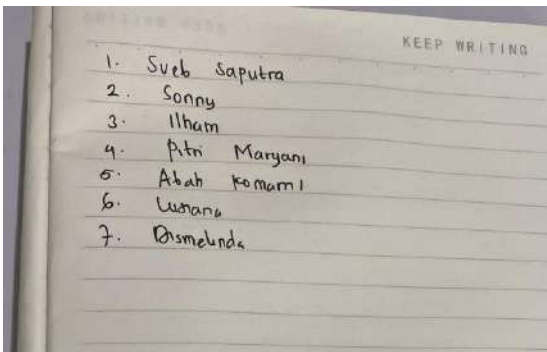 KEEP WRITING
1. Sueb Saputra
2. Sonny
3. Ilham
4. Pitri Maryani
5. Abah Komami
6.
7. Dismelinda